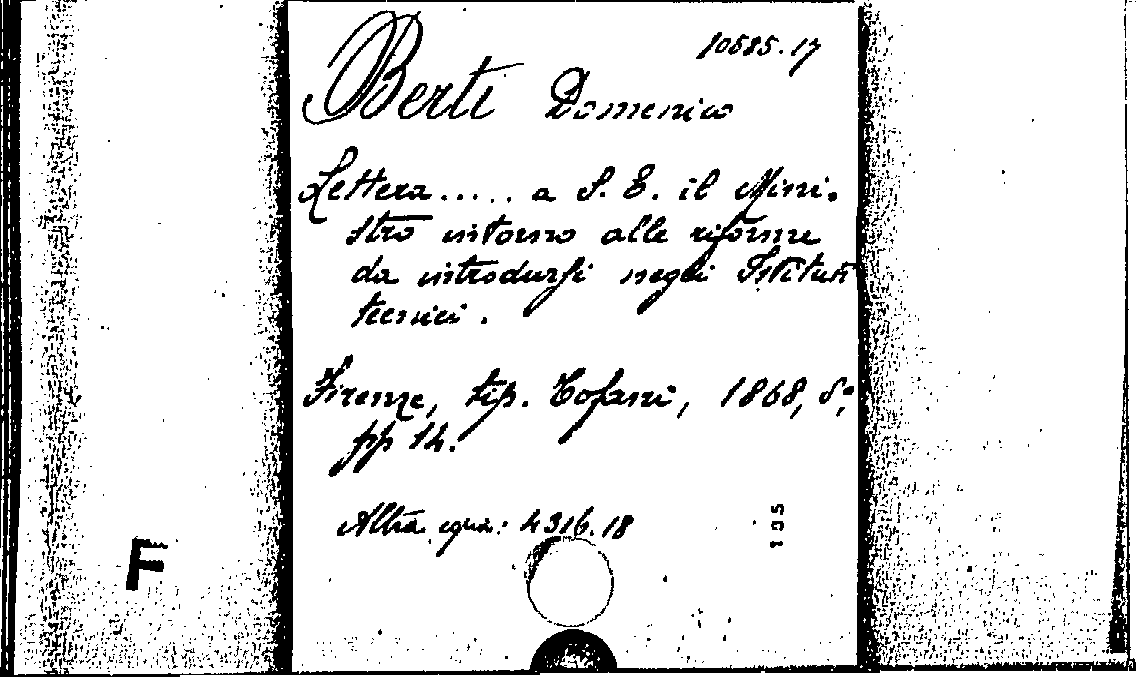 10585.17
Berti Domenico
Lettera..... a S. E. il Mini-
stro intorno alle riforme
da introdursi negli Istituti
tecnici.
Firenze, tip. Tofani, 1868, 8°,
pp 14.
Altra equa: 4316.18
195
F